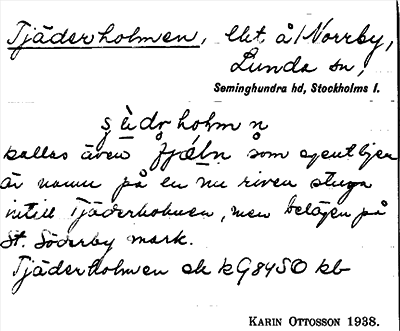 Tjäderholmen, lht å/ Norrby,
Lunda sn,
Seminghundra hd, Stockholms l.
kallas även som egentligen
är namn på en nu riven stuga
intill Tjäderholmen, men belägen på
St. Söderby mark.
Tjäderholmen ek kG84SO kb
KARIN OTTOSSON 1938.